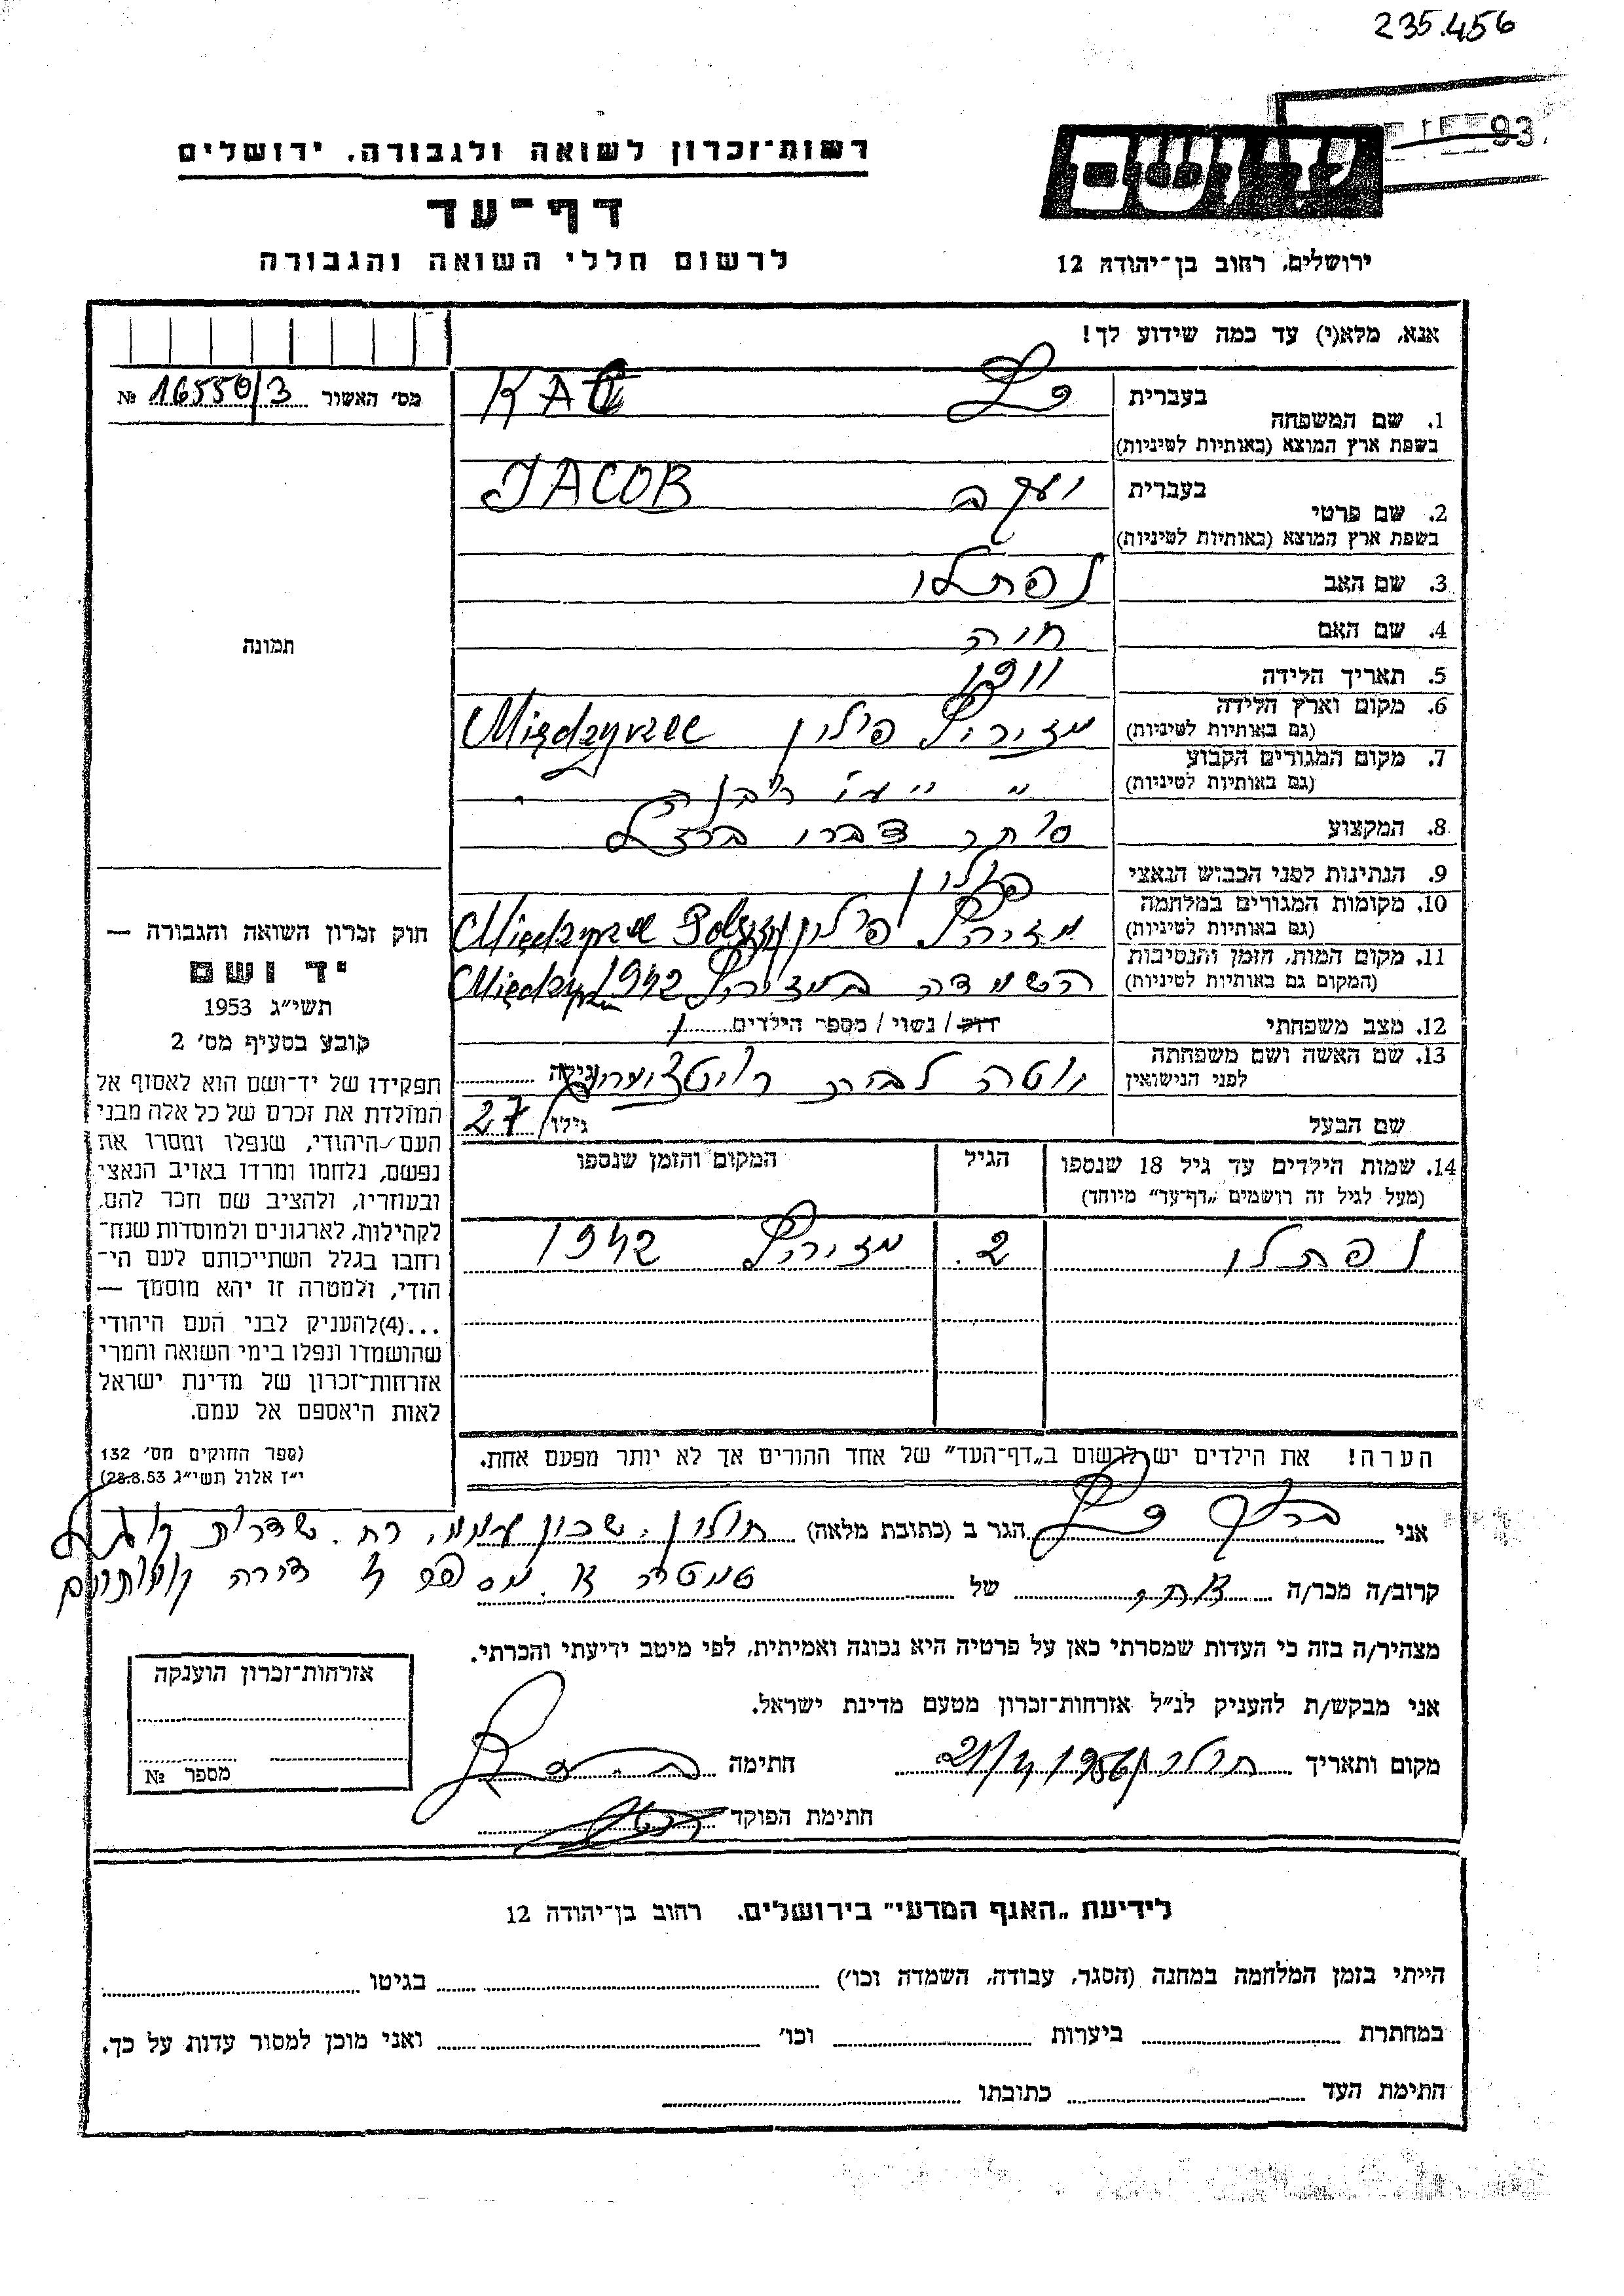 235.456
93
יד ושם
רשות־זכרון לשואה ולגבורה, ירושלים
דף־עד
לרשום חללי השואה והגבורה
ירושלים, רחוב בן־יהודה 12
אנא, מלא(י) עד כמה שידוע לך!
מס׳ האשור 16550/3 №
1. שם המשפחה
בעברית כץ KAC
בשפת ארץ המוצא (באותיות לטיניות)
2. שם פרטי
בעברית יעקב JACOB
בשפת ארץ המוצא (באותיות לטיניות)
3. שם האב נפתלי
4. שם האם חוה
5. תאריך הלידה 1911
6. מקום וארץ הלידה מזיריץ פולין Międzyrzec
(גם באותיות לטיניות)
7. מקום המגורים הקבוע
(גם באותיות לטיניות)
8. המקצוע סוחר דברי ברזל
9. הנתינות לפני הכבוש הנאצי פולין
10. מקומות המגורים במלחמה מזיריץ פולין Międzyrzec
(גם באותיות לטיניות)
11. מקום המות, הזמן והנסיבות השמדה במזיריץ 1942
(המקום גם באותיות לטיניות)
12. מצב משפחתי רוק / נשוי / מספר הילדים 1
13. שם האשה ושם משפחתה
לפני הנישואין
שם הבעל גילו/ 27
14. שמות הילדים עד גיל 18 שנספו הגיל המקום והזמן שנספו
(מעל לגיל זה רושמים „דף־עד” מיוחד)
נפתלי 2 מזיריץ 1942
הערה! את הילדים יש לרשום ב„דף־העד” של אחד ההורים אך לא יותר מפעם אחת.
תמונה
חוק זכרון השואה והגבורה —
יד ושם
תשי״ג 1953
קובע בסעיף מס׳ 2
תפקידו של יד־ושם הוא לאסוף אל
המולדת את זכרם של כל אלה מבני
העם היהודי, שנפלו ומסרו את
נפשם, נלחמו ומרדו באויב הנאצי
ובעוזריו, ולהציב שם וזכר להם,
לקהילות, לארגונים ולמוסדות שנח־
רבו בגלל השתייכותם לעם הי־
הודי, ולמטרה זו יהא מוסמך —
...(4)להעניק לבני העם היהודי
שהושמדו ונפלו בימי השואה והמרי
אזרחות־זכרון של מדינת ישראל
לאות היאספם אל עמם.
(ספר החוקים מס׳ 132
י״ז אלול תשי״ג 28.8.53)
אני ברוך כץ הגר ב (כתובת מלאה) חולון, שכון עממי, רח. שדרות
קרוב/ה מכר/ה אחי של
מצהיר/ה בזה כי העדות שמסרתי כאן על פרטיה היא נכונה ואמיתית, לפי מיטב ידיעתי והכרתי.
אני מבקש/ת להעניק לנ״ל אזרחות־זכרון מטעם מדינת ישראל.
מקום ותאריך חולון 1956 חתימה ב. כץ
חתימת הפוקד
אזרחות־זכרון הוענקה
מספר №
לידיעת „האגף המדעי” בירושלים. רחוב בן־יהודה 12
הייתי בזמן המלחמה במחנה (הסגר, עבודה, השמדה וכו׳) בגיטו
במחתרת ביערות וכו׳ ואני מוכן למסור עדות על כך.
חתימת העד כתובתו